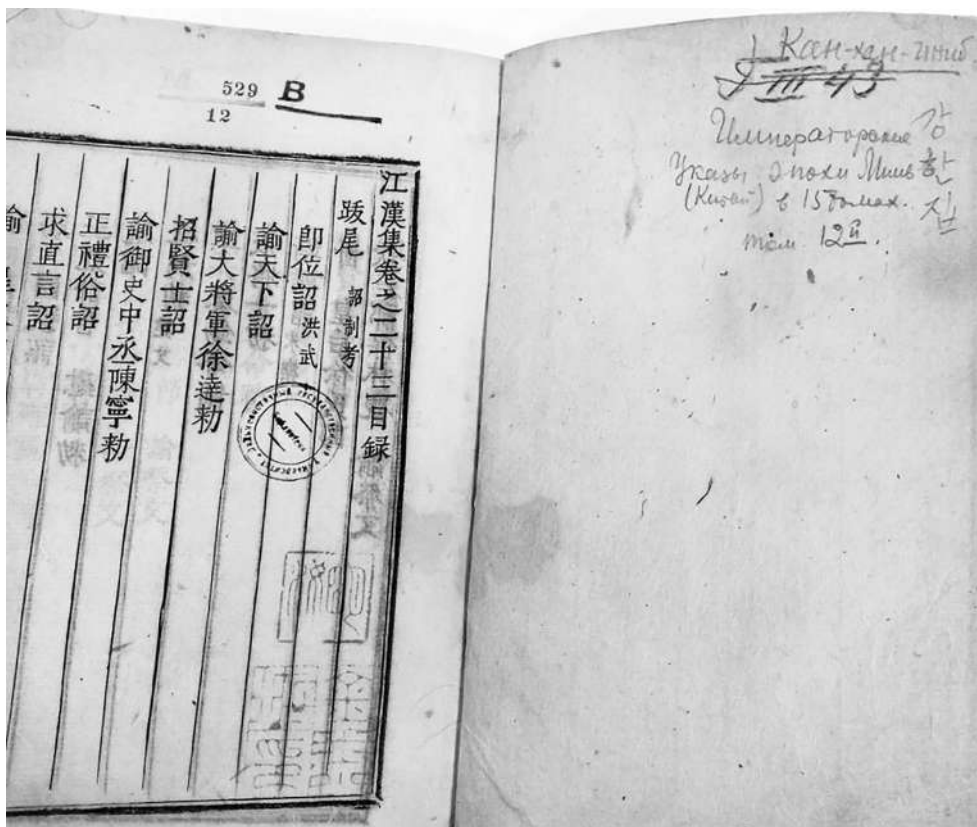 529 В
12
江漢集卷之二十三目録
跋尾 詔制考
即位詔 洪武
諭天下詔
諭大將軍徐達勅
招賢士詔
諭御史中丞陳寧勅
正禮俗詔
求直言詔
諭
Кан-хан-
III 43
Императорские
Указы Эпохи Минь
(Китай) в 15 томах.
том 12й.
강한집